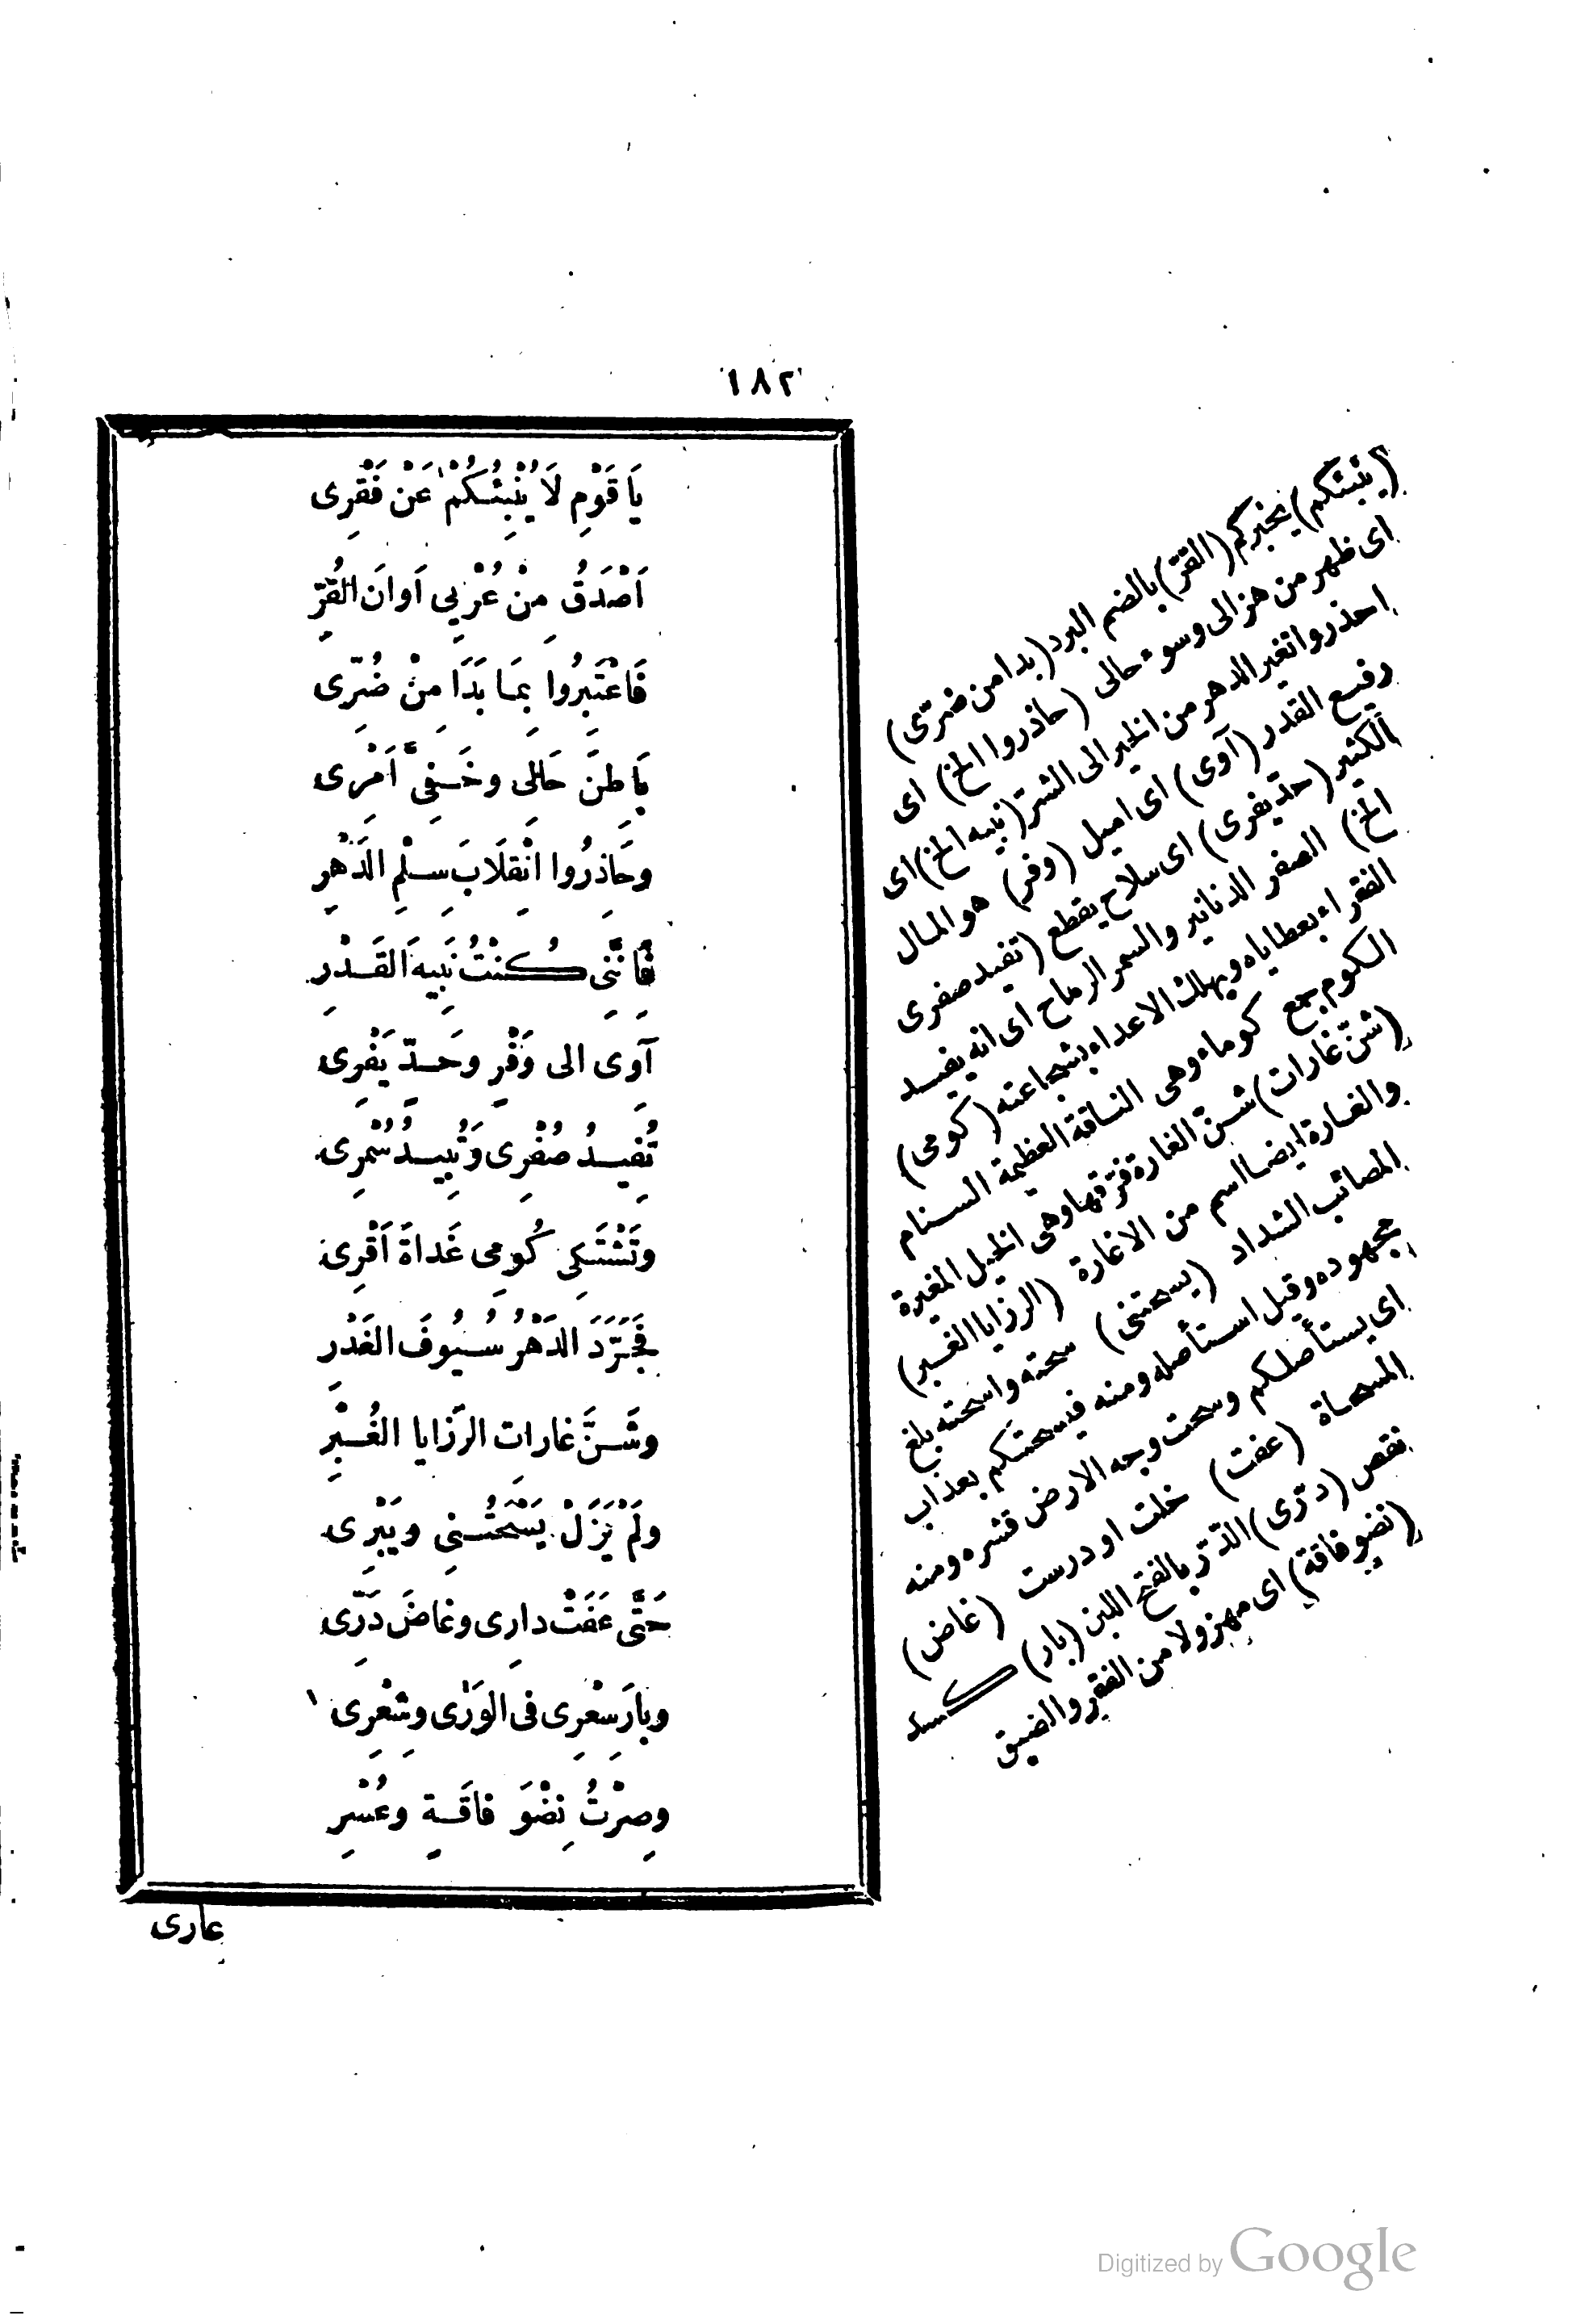 ١٨٢
يَا قَوْمِ لَا يُنْبِئُكُمْ عَنْ فَقْرِى
اَصْدَقُ مِنْ عُرْيِي اَوانَ القُرِّ
فَاعْتَبِرُوا بِمَا بَدَا مِنْ ضُرِّى
بَاطِنَ حَالِى وخَفِىَّ اَمْرِى
وحَاذِرُوا انْقِلَابَ سِلْمِ الدَّهْرِ
فَاِنَّنِى كُنْتُ نَبِيهَ القَدْرِ
آوِى الى وَفْرٍ وحَدٍّ يَفْرِى
تُفِيدُ صُفْرِى وَتُبِيدُ سُمْرِى
وتَشْتَكِى كُومِى غَداةَ اَقْرِى
فَجَرَّدَ الدَّهْرُ سُيُوفَ الغَدْرِ
وشَنَّ غارَاتِ الرَّزايا الغُبْرِ
ولَمْ يَزَلْ يَسْحَتُنِى ويَبْرِى
حَتَّى عَفَتْ دارِى وغاضَ دَرِّى
وبارَ سِعْرِى فى الوَرَى وشِعْرِى
وصِرْتُ نِضْوَ فاقَةٍ وعُسْرِ
عارى
(ينبئكم) يخبركم (القر) بالضم البرد (بدا من ضرى)
اى ظهر من هزالى وسوء حالى (حاذروا الخ) اى
احذروا تغير الدهر من الخير الى الشر (نبيه الخ) اى
رفيع القدر (آوى) اى اميل (وفر) هو المال
الكثير (حد يفرى) اى سلاح يقطع (تفيد صفرى
الخ) الصفر الدنانير والسمر الرماح اى انه يفيد
الفقراء بعطاياه ويهلك الاعداء بشجاعته (كومى)
الكوم جمع كوماء وهى الناقة العظيمة السنام
(شن غارات) شن الغارة فرقها وهى الخيل المغيرة
والغارة ايضا اسم من الاغارة (الرزايا الغبر)
المصائب الشداد (يسحتنى) سحته واسحته بلغ
مجهوده وقيل استأصله ومنه فيسحتكم بعذاب
اى يستأصلكم وسحت وجه الارض قشره ومنه
المسحاة (عفت) خلت او درست (غاض)
نقص (درى) الدر بالفتح اللبن (بار) كسد
(نضو فاقة) اى مهزولا من الفقر والضيق
Digitized by Google